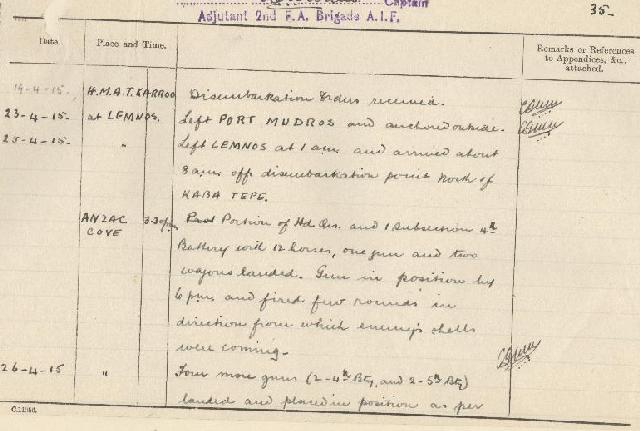 Captain
Adjutant 2nd F.A. Brigade A.I.F.
35.
Date
Place and Time.
Remarks or References
to Appendices, &c.,
attached.
19-4-15. H.M.A.T. KARROO Disembarkation Orders received.
23-4-15. at LEMNOS. Left PORT MUDROS and anchored outside.
25-4-15. " Left LEMNOS at 1 am and arrived about
8 am off disembarkation point North of
KABA TEPE.
ANZAC 3.30pm Portion of Hd Qrs. and 1 Subsection 4th
COVE Battery with 12 horses, one gun and two
wagons landed. Gun in position by
6 pm and fired few rounds in
direction from which enemy's shells
were coming.
26-4-15 " Four more guns (2-4th Bty, and 2-5th Bty)
landed and placed in position as per